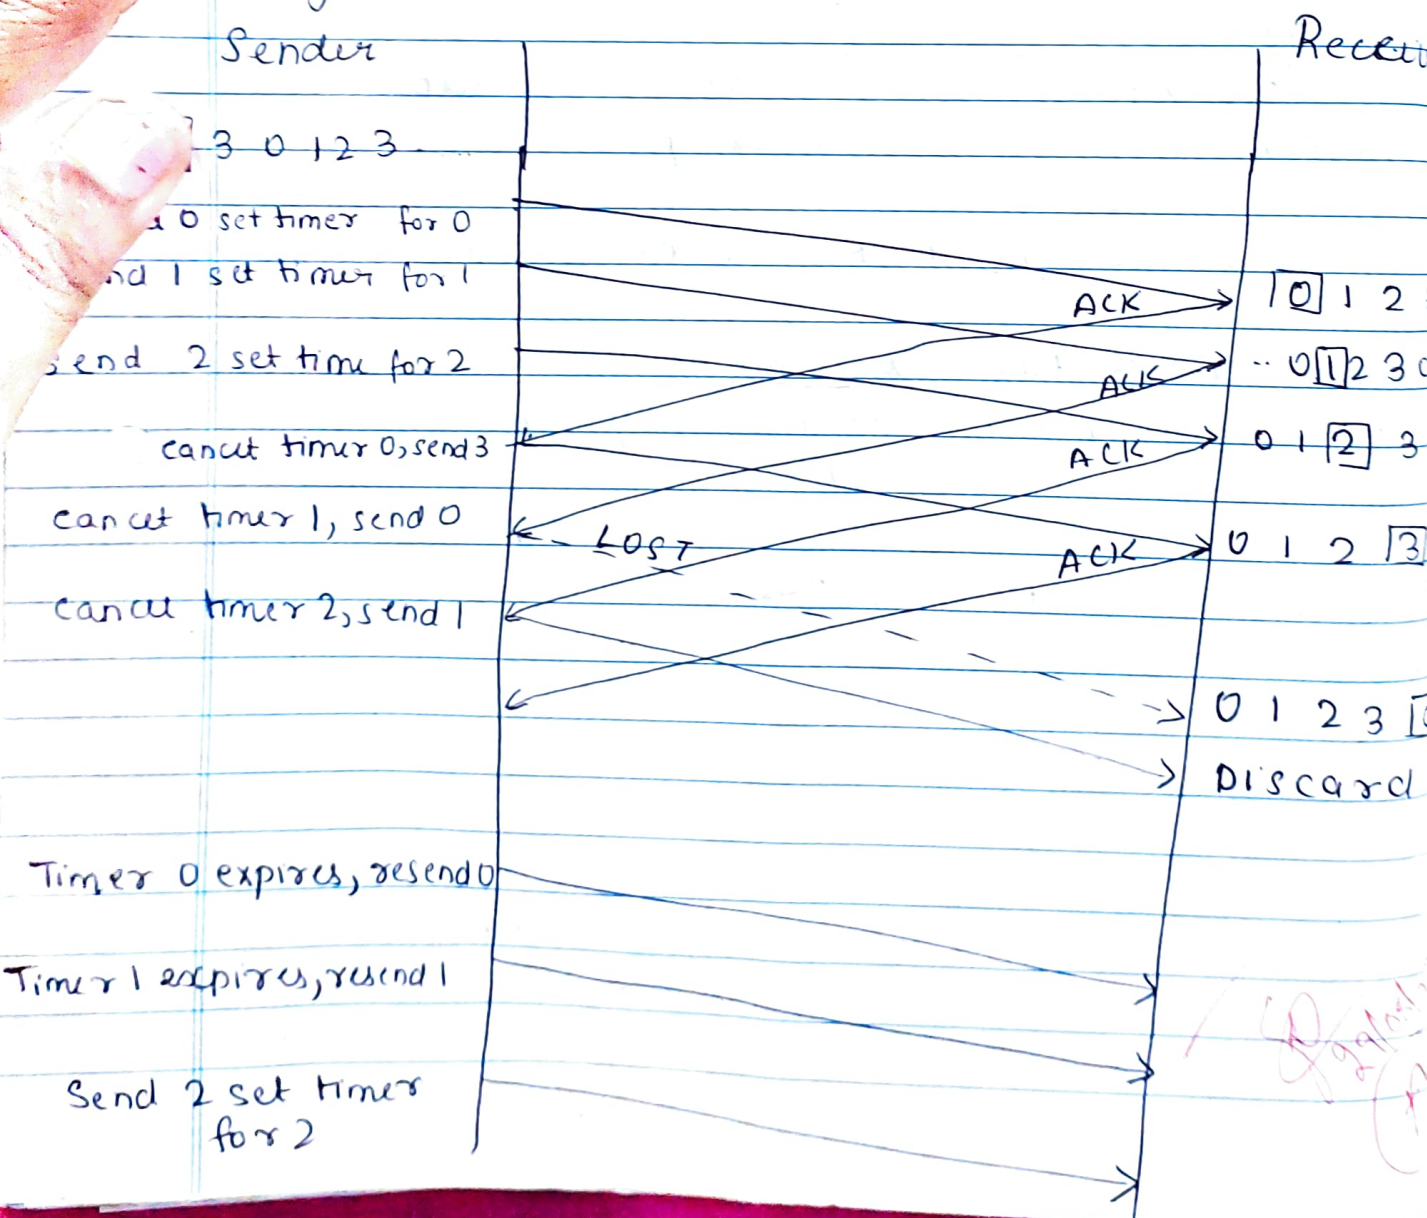 Sender
3 0 1 2 3 ...
0 set timer for 0
1 set timer for 1
send 2 set time for 2
cancel timer 0, send 3
cancel timer 1, send 0
LOST
cancel timer 2, send 1
Timer 0 expires, resend 0
Timer 1 expires, resend 1
Send 2 set timer
for 2
ACK
ACK
ACK
ACK
0 1 2
.. 0 1 2 3 0
0 1 2 3
0 1 2 3
0 1 2 3
Discard